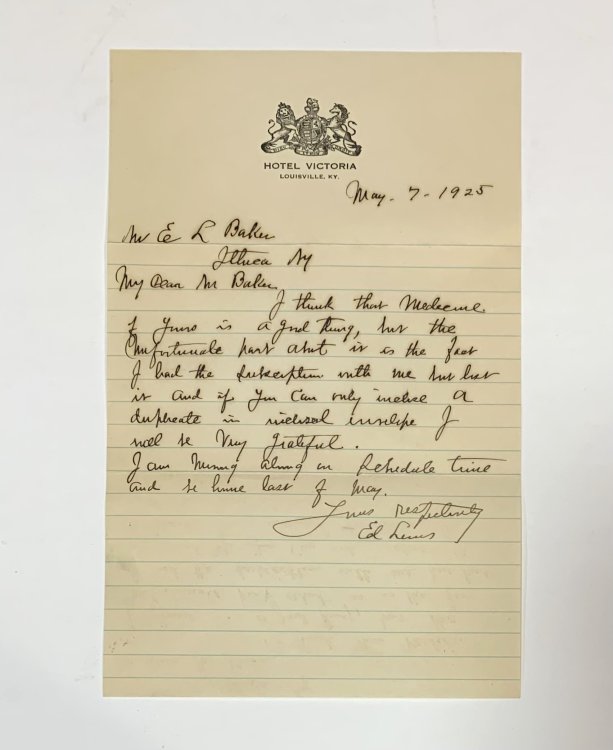 HOTEL VICTORIA
LOUISVILLE, KY.
May - 7 - 1925
Mr E L Baker
Ithica Ny
My Dear Mr Baker
I think that Medecine
of yours is a good thing, but the
unfortunate part abut it is the fact
I had the Subscription with me but lost
it and if you can only inclose a
duplicate in inclosed invelope I
will be Very grateful.
I am moving along on Schedule time
and be home last of May.
Yours respectively
Ed Lewis